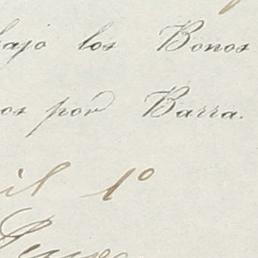 bajo los Bonos
os por Barra.
il 1º